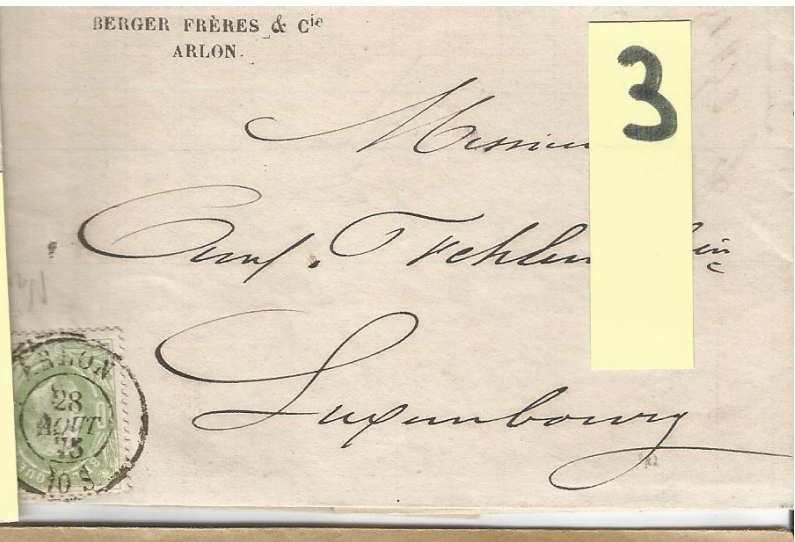 BERGER FRÈRES & Cie
ARLON.
3
Messieu
Luxembourg
ARLON
28
AOUT
75
10 S